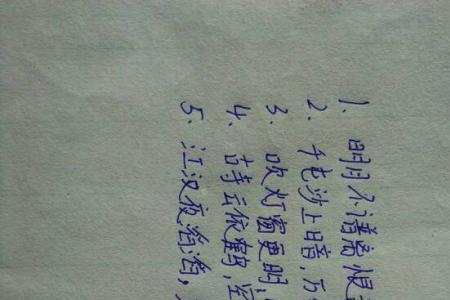 1. 明月不谙离恨
2. 千屯沙上暗,
3. 吹灯窗更明,
4. 古寺云依鹤,空
5. 江汉夜滔滔,